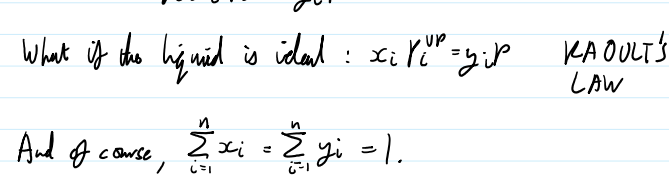 What if the liquid is ideal : xᵢ Pᵢᵛᵖ = yᵢP RAOULT'S
LAW
And of course, ∑ⁿᵢ₌₁ xᵢ = ∑ⁿᵢ₌₁ yᵢ = 1.